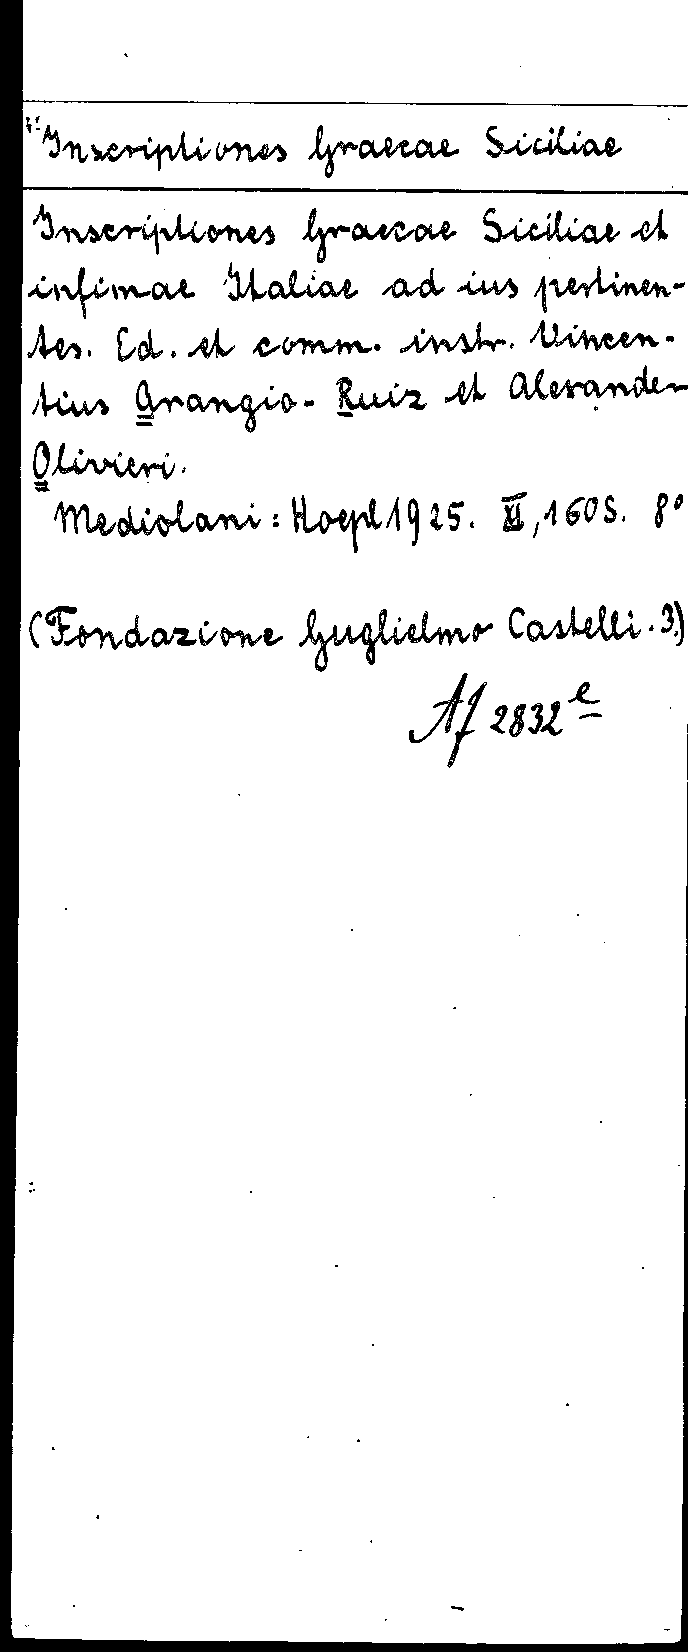 Inscriptiones Graecae Siciliae
Inscriptiones Graecae Siciliae et
infimae Italiae ad ius pertinen-
tes. Ed. et comm. instr. Vincen-
tius Arangio-Ruiz et Alexander
Olivieri.
Mediolani: Hoepl 1925. XI, 160 S. 8°
(Fondazione Guglielmo Castelli. 3.)
Af 2832 e